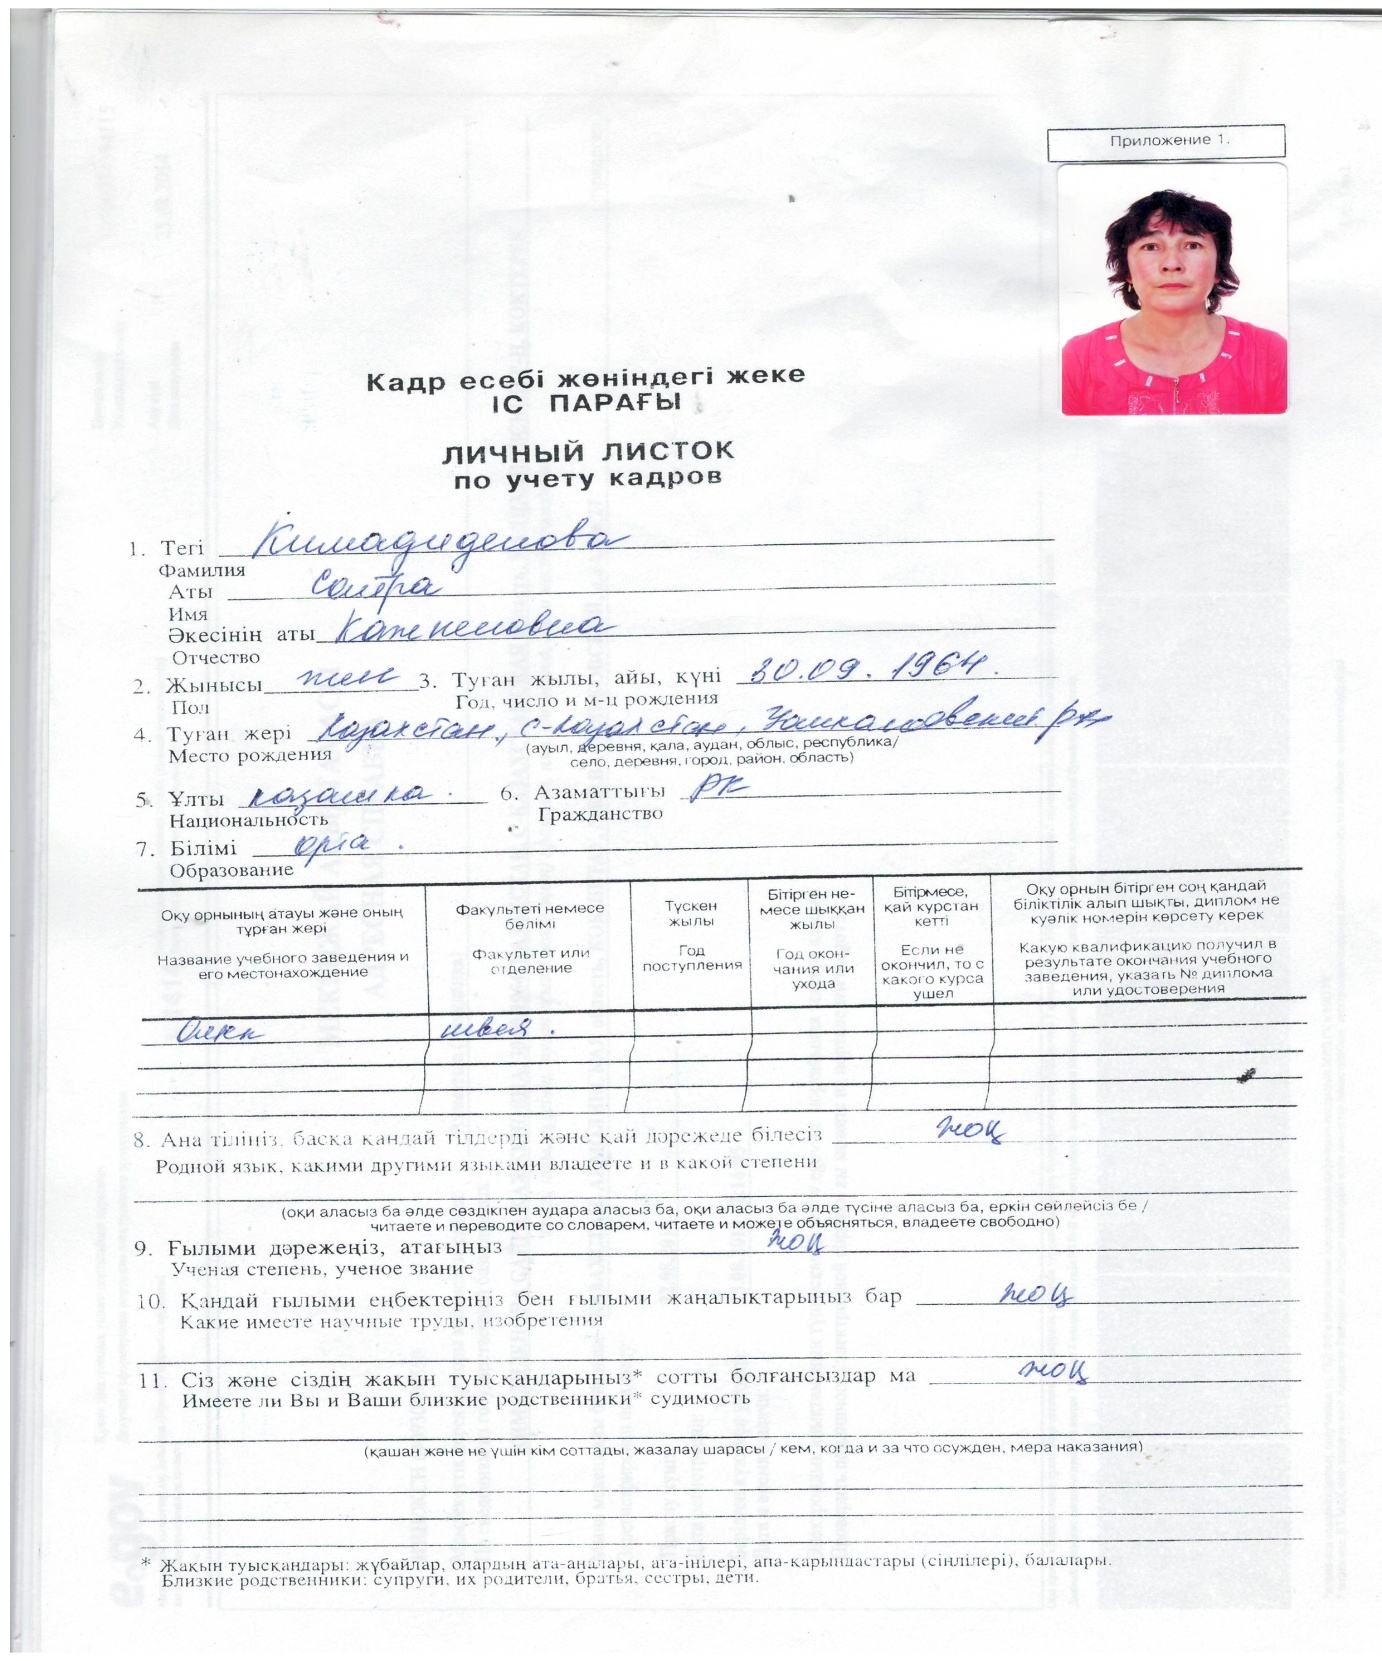 Приложение 1.
Кадр есебі жөніндегі жеке
ІС ПАРАҒЫ
ЛИЧНЫЙ ЛИСТОК
по учету кадров
1. Тегі
Фамилия
Аты
Имя
Әкесінің аты
Отчество
2. Жынысы жен 3. Туған жылы, айы, күні 30.09.1964.
Пол Год, число и м-ц рождения
4. Туған жері Казахстан, С-Казахстан,
Место рождения (ауыл, деревня, қала, аудан, облыс, республика/
село, деревня, город, район, область)
5. Ұлты казашка. 6. Азаматтығы РК
Национальность Гражданство
7. Білімі орта.
Образование
Оқу орнының атауы және оның
тұрған жері
Название учебного заведения и
его местонахождение
Факультеті немесе
бөлімі
Факультет или
отделение
Түскен
жылы
Год
поступления
Бітірген не-
месе шыққан
жылы
Год окон-
чания или
ухода
Бітірмесе,
қай курстан
кетті
Если не
окончил, то с
какого курса
ушел
Оқу орнын бітірген соң қандай
біліктілік алып шықты, диплом не
куәлік номерін көрсету керек
Какую квалификацию получил в
результате окончания учебного
заведения, указать № диплома
или удостоверения
швея.
8. Ана тіліңіз, басқа қандай тілдерді және қай дәрежеде білесіз жоқ
Родной язык, какими другими языками владеете и в какой степени
(оқи аласыз ба әлде сөздікпен аудара аласыз ба, оқи аласыз ба әлде түсіне аласыз ба, еркін сөйлейсіз бе /
читаете и переводите со словарем, читаете и можете объясняться, владеете свободно)
9. Ғылыми дәрежеңіз, атағыңыз жоқ
Ученая степень, ученое звание
10. Қандай ғылыми еңбектеріңіз бен ғылыми жаңалықтарыңыз бар жоқ
Какие имеете научные труды, изобретения
11. Сіз және сіздің жақын туысқандарыңыз* сотты болғансыздар ма жоқ
Имеете ли Вы и Ваши близкие родственники* судимость
(қашан және не үшін кім соттады, жазалау шарасы / кем, когда и за что осужден, мера наказания)
* Жақын туысқандары: жұбайлар, олардың ата-аналары, аға-інілері, апа-қарындастары (сіңлілері), балалары.
Близкие родственники: супруги, их родители, братья, сестры, дети.